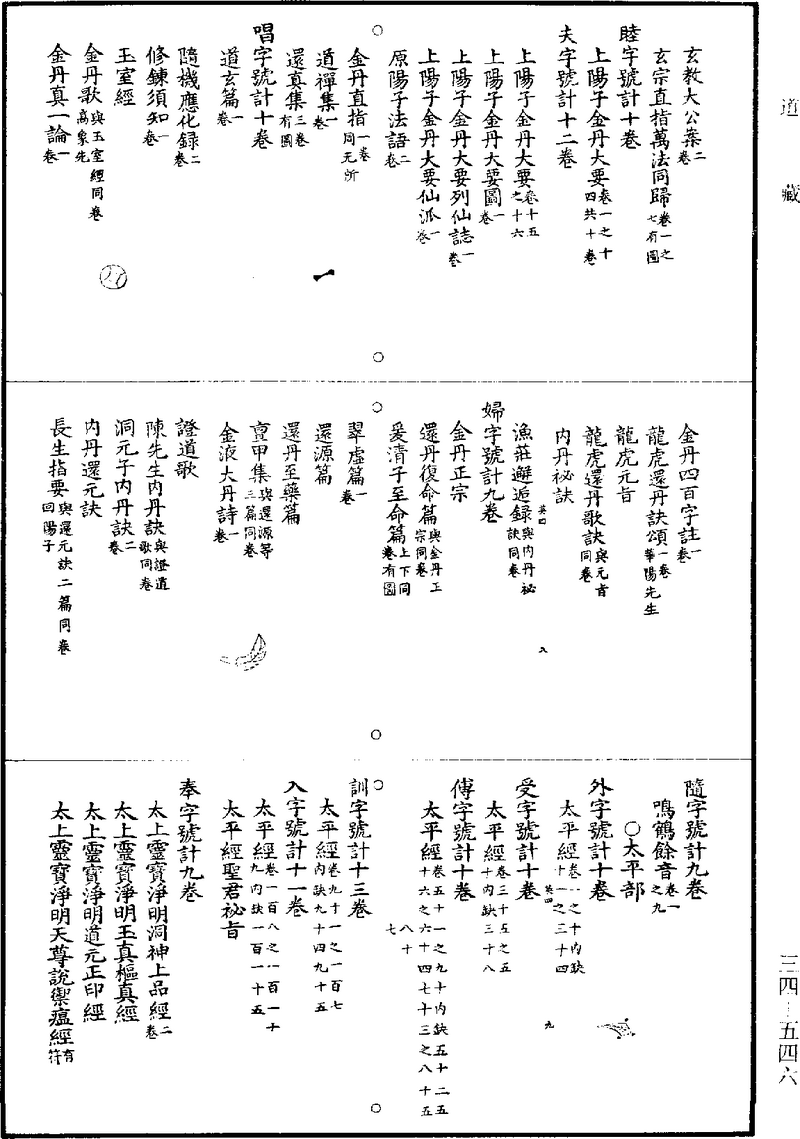 道藏
玄教大公案二卷
玄宗直指萬法同歸卷一之七有圖
睦字號計十卷
上陽子金丹大要卷一之十四共十卷
夫字號計十二卷
上陽子金丹大要卷十五之十六
上陽子金丹大要圖一卷
上陽子金丹大要列仙誌一卷
上陽子金丹大要仙派一卷
原陽子法語二卷
金丹直指一卷同元所
道禪集一卷
還真集三卷有圖
唱字號計十卷
道玄篇一卷
隨機應化録二卷
修鍊須知一卷
玉室經
金丹歌與玉室經同卷高象先
金丹真一論一卷
金丹四百字註一卷
龍虎還丹訣頌一卷華陽先生
龍虎元旨
龍虎還丹歌訣與元旨同卷
内丹祕訣
英四
漁莊邂逅録與内丹祕訣同卷
九
婦字號計九卷
金丹正宗
還丹復命篇與金丹正宗同卷
爰清子至命篇上下同卷有圖
翠虛篇一卷
還源篇
還丹至藥篇
亶甲集與還源等三篇同卷
金液大丹詩一卷
證道歌
陳先生内丹訣與證道歌同卷
洞元子内丹訣二卷
内丹還元訣
長生指要與還元訣二篇同卷回陽子
隨字號計九卷
鳴鶴餘音卷一之九
○太平部
外字號計十卷
太平經卷一之十内缺十一之三十四
英四
受字號計十卷
九
太平經卷三十五之五十内缺三十八
傅字號計十卷
太平經卷五十一之九十内缺五十二五十六之六十四七十三之八十五八十七
訓字號計十三卷
太平經卷九十一之一百七内缺九十四九十五
入字號計十一卷
太平經卷一百八之一百一十九内缺一百一十五
太平經聖君祕旨
奉字號計九卷
太上靈寳淨明洞神上品經二卷
太上靈寳淨明玉真樞真經
太上靈寳淨明道元正印經
太上靈寳淨明天尊說禦瘟經有符
三四—五四六